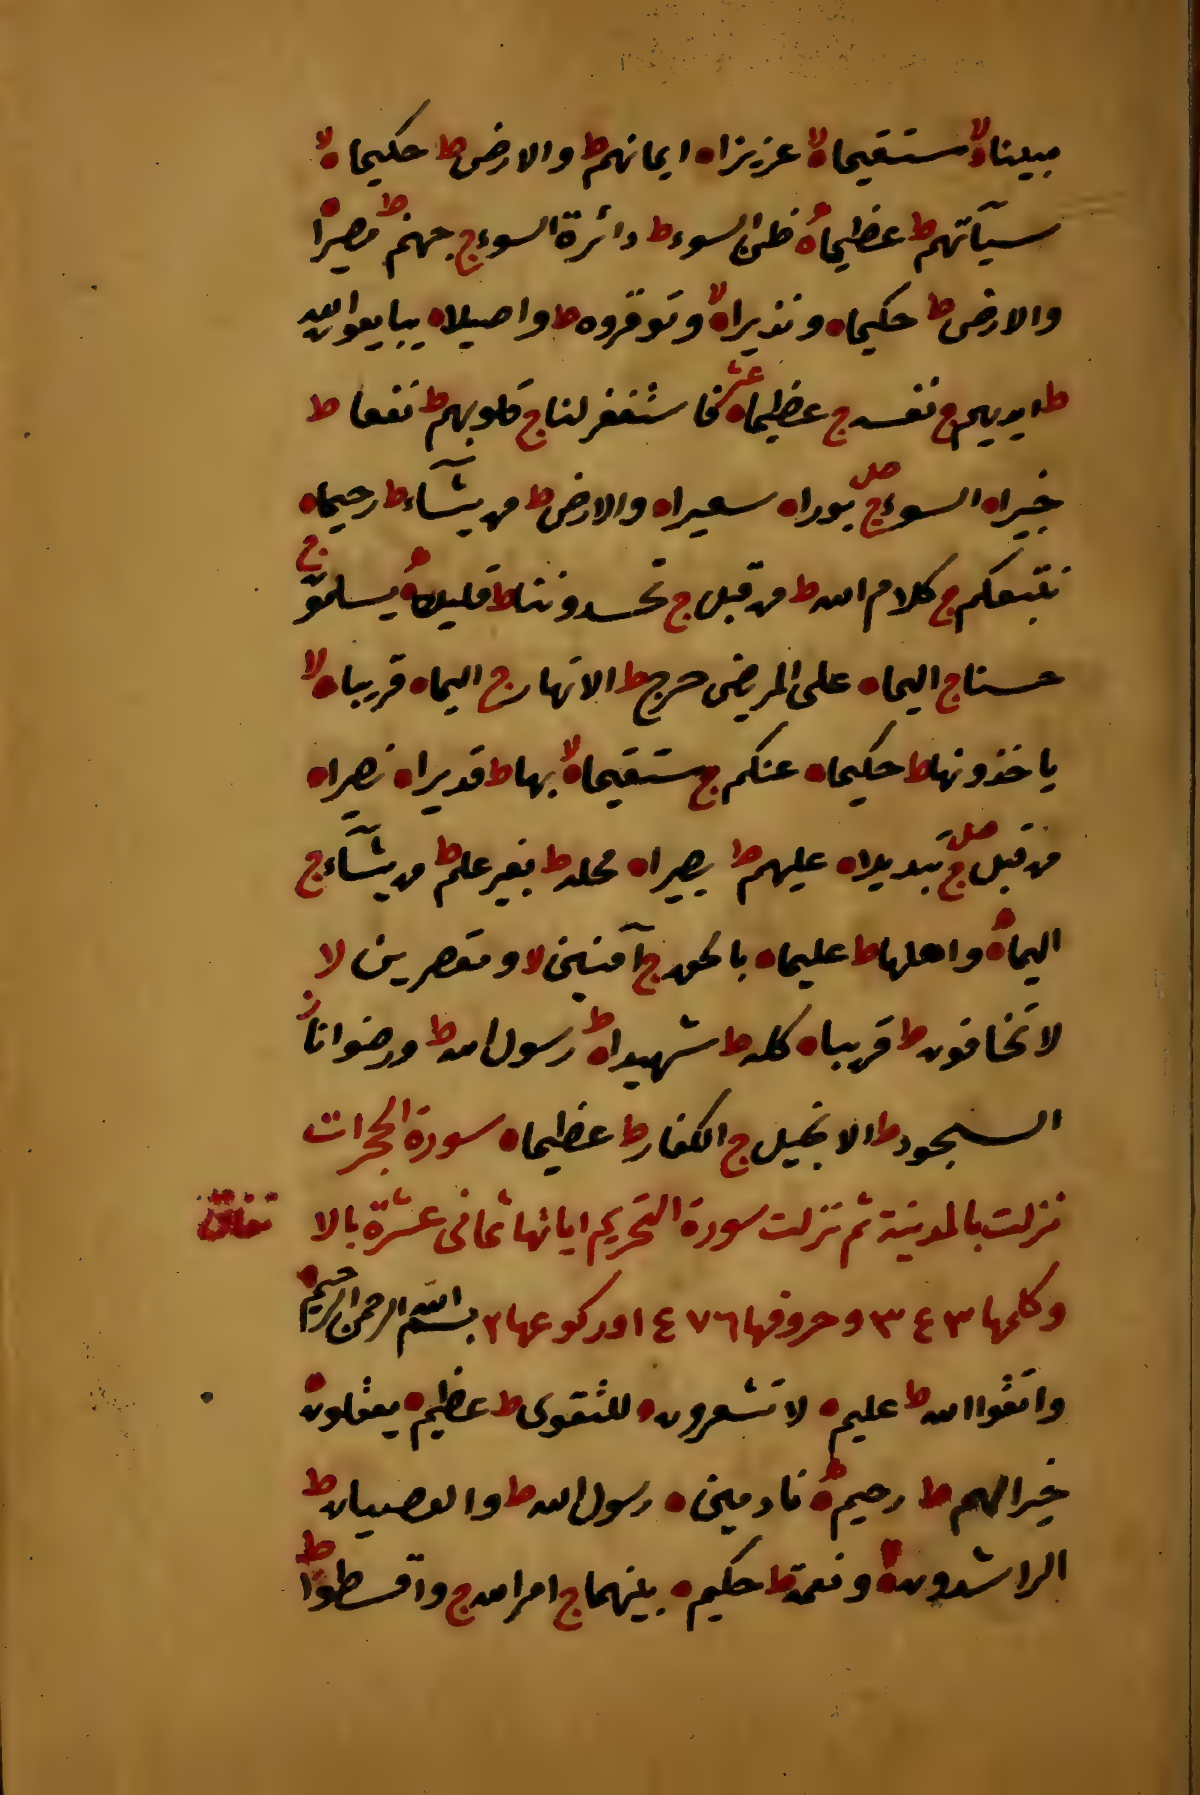 مبيناه لا مستقيماه لا عزيزاه ايمانهم ط والارض ط حكيماه لا
سيآتهم ط عظيماه ظن السوء ط دائرة السوء ج جهنم ط مصيرا
والارض ط حكيماه ونذيراه لا وتوقروه ط واصيلاه يبايعون الله
ط ايديهم ج نفسه ج عظيماه عشر فاستغفر لنا ج قلوبهم ط نفعا ط
خبيراه السوء ج صلى بوراه سعيراه والارض ط من يشآء ط رحيماه
نتبعكم ج كلام الله ط من قبل ج تحسدوننا ط قليلاه يسلمون ج
حسنا ج اليماه على المريض حرج ط الانهار ج اليماه قريباه لا
ياخذونها ط حكيماه عنكم ج مستقيماه لا بها ط قديراه نصيراه
من قبل ج صلى تبديلاه عليهم ط بصيراه محله ط بغير علم ط من يشآء ج
اليماه واهلها ط عليماه بالحق ج آمنين لا ومقصرين لا
لا تخافون ط قريباه كله ط شهيداه ط رسول الله ط ورضوانا ز
السجود ط الانجيل ج الكفار ط عظيماه سورة الحجرات
نزلت بالمدينة ثم نزلت سورة التحريم اياتها ثمانى عشرة بالا تفاق
وكلمها ٣٤٣ وحروفها ١٤٧٦ وركوعها ٢ بسم الله الرحمن الرحيم
واتقوا الله ط عليم ه لا تشعرون ه للتقوى ط عظيم ه يعقلون ه
خيرا لهم ط رحيم ه نادمين ه رسول الله ط والعصيان ط
الراشدون ه لا ونعمة ط حكيم ه بينهما ج امر الله ج واقسطوا ط